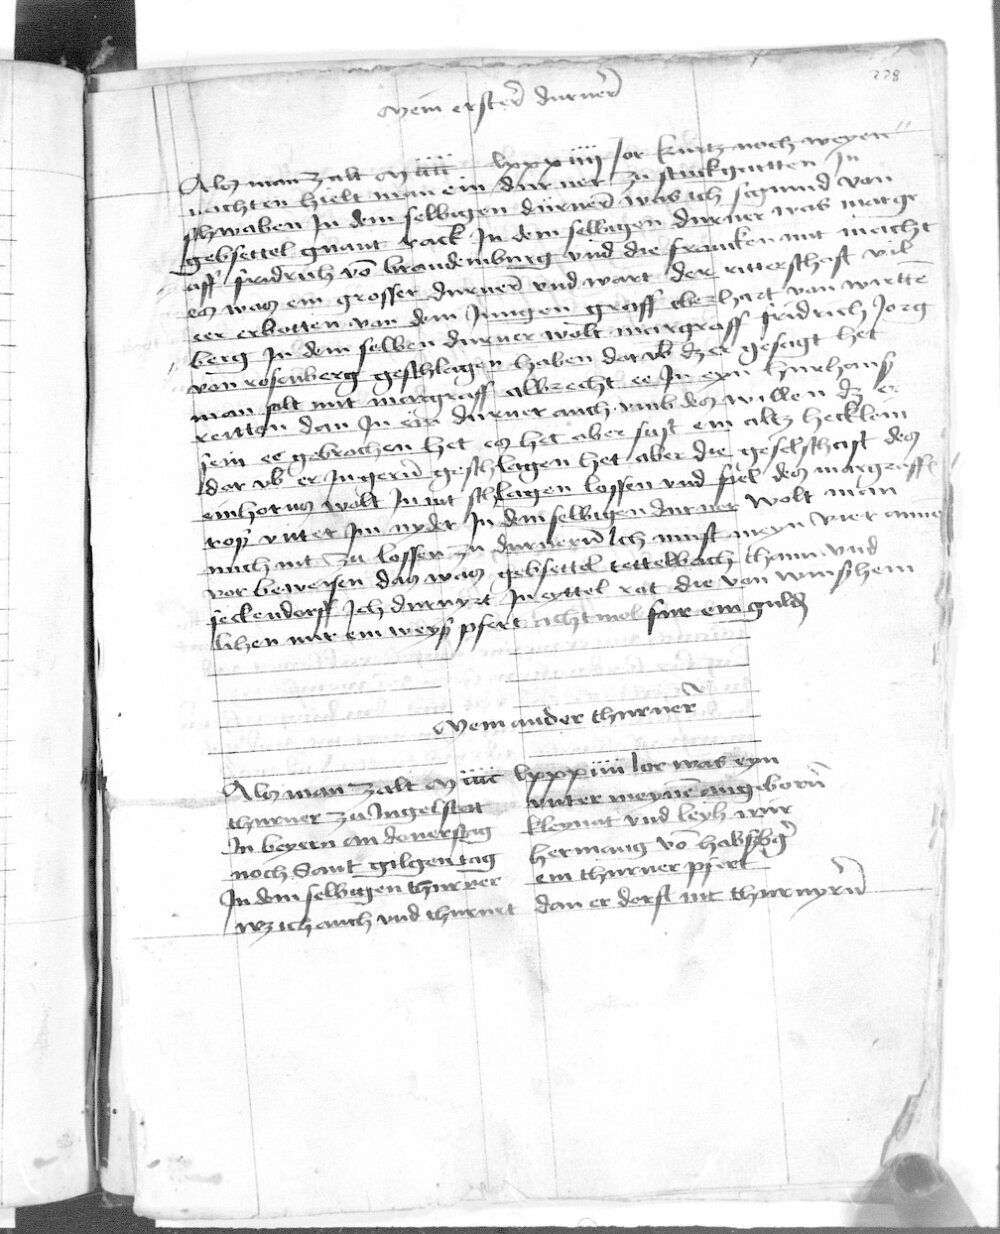 228
Mein erster durner
Als man zalt M iiiic lxxxiiii Jor kurtz noch weyen
nachten hielt man ein durner zu stuckgartten In
schwaben In dem selbigen durner was ich sigmund von
gebsettel gnant rack In dem selbigen durner was margr
aff fridrich võ brandemburg vnd die francken mit macht
es was ein grosser durner vnd wart der ritterschaft vil
eer erbotten von dem Jungen graff eberhart von wirttē
berg In dem selben durner wolt margraff fridrich Jorg
von rosenberg geschlagen haben dar vb dz er gesagt het
man solt mit margraff albrecht ee In eyn hurhauß
reitten dan In ein durner auch vmb des willen dz er
sein ee gebrochen het es het aber sust ein altz hecklein
dar vb er In gern geschlagen het aber die geselschaft des
einhorns wolt In nit schlagen lossen vnd fiel des margraff
roß vnter Im nyder In dem selbigen durner wolt man
mich nit zu lossen zu durnern Ich must meyn vier anne
vor beweysen das was gebsettel tettelbach thann vnd
seckendorff Ich durnyrt In eyttel rot die von winßhem
lihen mir ein weyß pfert achtmol fur ein guldē
Mein ander thurner
Als man zalt M iiiic lxxxiiii Jor was eyn
thurner zu Ingelstett
In beyern am donerstag
noch Sant gilgen tag
In dem selbigen thurner
wz ich auch vnd thurnirt
vnter meynē angeborn
kleynat vnd leyh mir
herman võ habsbg
ein thurner pfert
dan er dorft nit thurnyrn